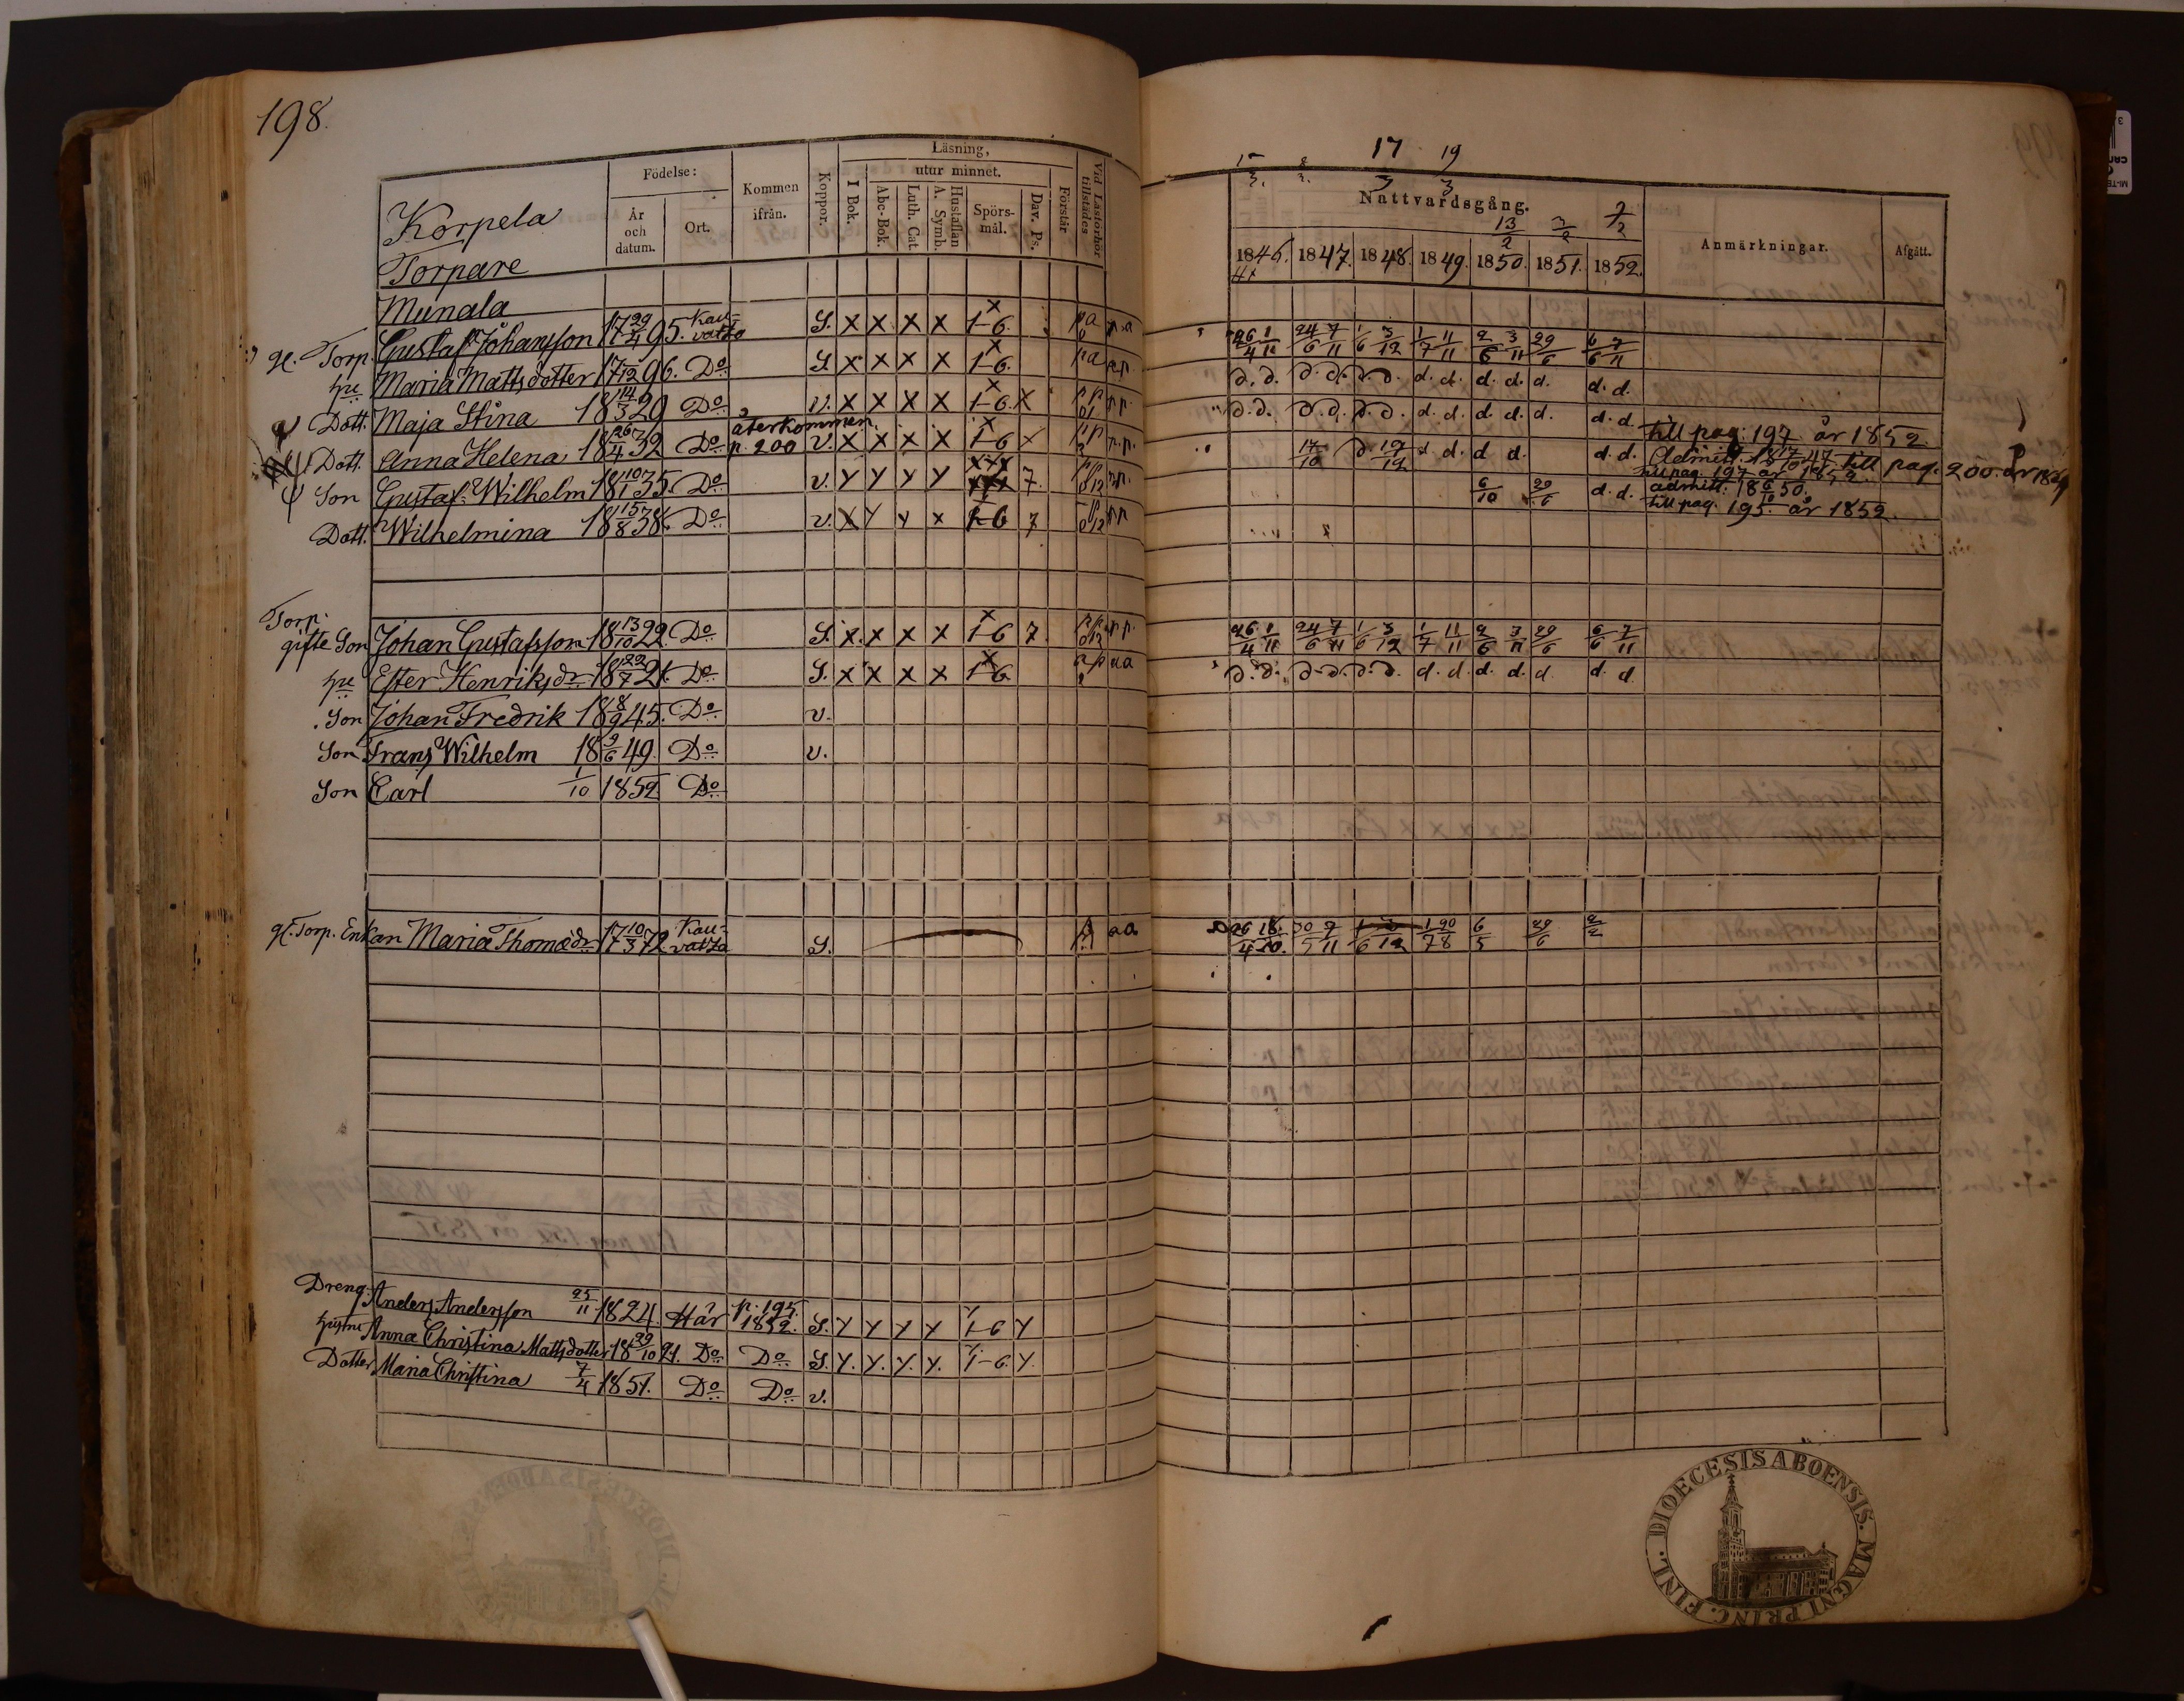 198.
Korpela
Torpare
Munala
Födelse:
År och datum.
Ort.
Kommen ifrån.
Koppor.
Läsning,
utur minnet.
I Bok.
Abc-Bok.
Luth. Cat.
Hustaflan A. Symb.
Spörsmål.
Dav. Ps.
Förstår
Vid Läsförhör tillstädes
17 19
Nattvardsgång.
13/2 3/2 7/2
1846. 1847. 1848. 1849. 1850. 1851. 1852.
Anmärkningar.
Afgått.
gl. Torp. Gustaf Johansson 17 29/4 95. Kauvatto S. X X X X 1-6. 26/4 1/11 24/6 7/11 1/6 3/12 1/7 11/11 2/6 3/11 29/6 6/6 7/11
hu Maria Mattsdotter 96. Do S X X X X 1-6. d. d. d. d. d. d. d. d. d. d. d. d. d.
Dott. Maja Stina 18 14/3 29 Do v. X X X X 1-6. X d. d. d. d. d. d. d. d. d. d. d. d. d. till pag: 197 år 1852.
Dott. Anna Helena 18 26/4 32 Do återkommen p. 200 v. X X X X 1-6 X 17/10 d. 19/12 d. d. d. d. d. d. Admitt. 18 17/10 47, till pag. 200. år 18
till pag. 197 år 1852.
Son Gustaf Wilhelm 18 10/1 35. Do v. Y Y Y Y 7. 6/10 29/6 d. d. admitt. 18 6/10 50.
till pag. 195 år 1852.
Dott. Wilhelmina 18 15/8 38. Do v. X Y Y X 1-6 7
Torp.
gifte Son Johan Gustafsson 18 13/10 22. Do S. X. X X X 1-6 7. 26/4 1/11 24/6 7/11 1/6 3/12 1/7 11/11 2/6 3/11 29/6 6/6 7/11
hu Ester Henriksdr 18 22/7 21. Do S. X X X X 1-6 d. d. d. d. d. d. d. d. d. d. d. d. d.
Son Johan Fredrik 18 8/9 45. Do v.
Son Frans Wilhelm 18 9/6 49. Do v.
Son Carl 1/10 1852 Do
gl. Torp. Enkan Maria Thomædr 17 10/3 72 Kauvatza S. aa 26/4 18/10. 30/5 7/11 1/6 3/12 1/7 20/8 6/5 29/6 2/2
Dreng. Anders Andersson 25/11 1824. Här p. 195. 1852. S. Y Y Y Y 1-6 Y
hustru Anna Christina Mattsdotter 18 29/10 21. Do Do S. Y. Y. Y. Y. 1-6. Y.
Dotter Maria Christina 7/4 1851. Do Do v.
FINL. DIOECESIS ABOENSIS. MAGNI PRINC.